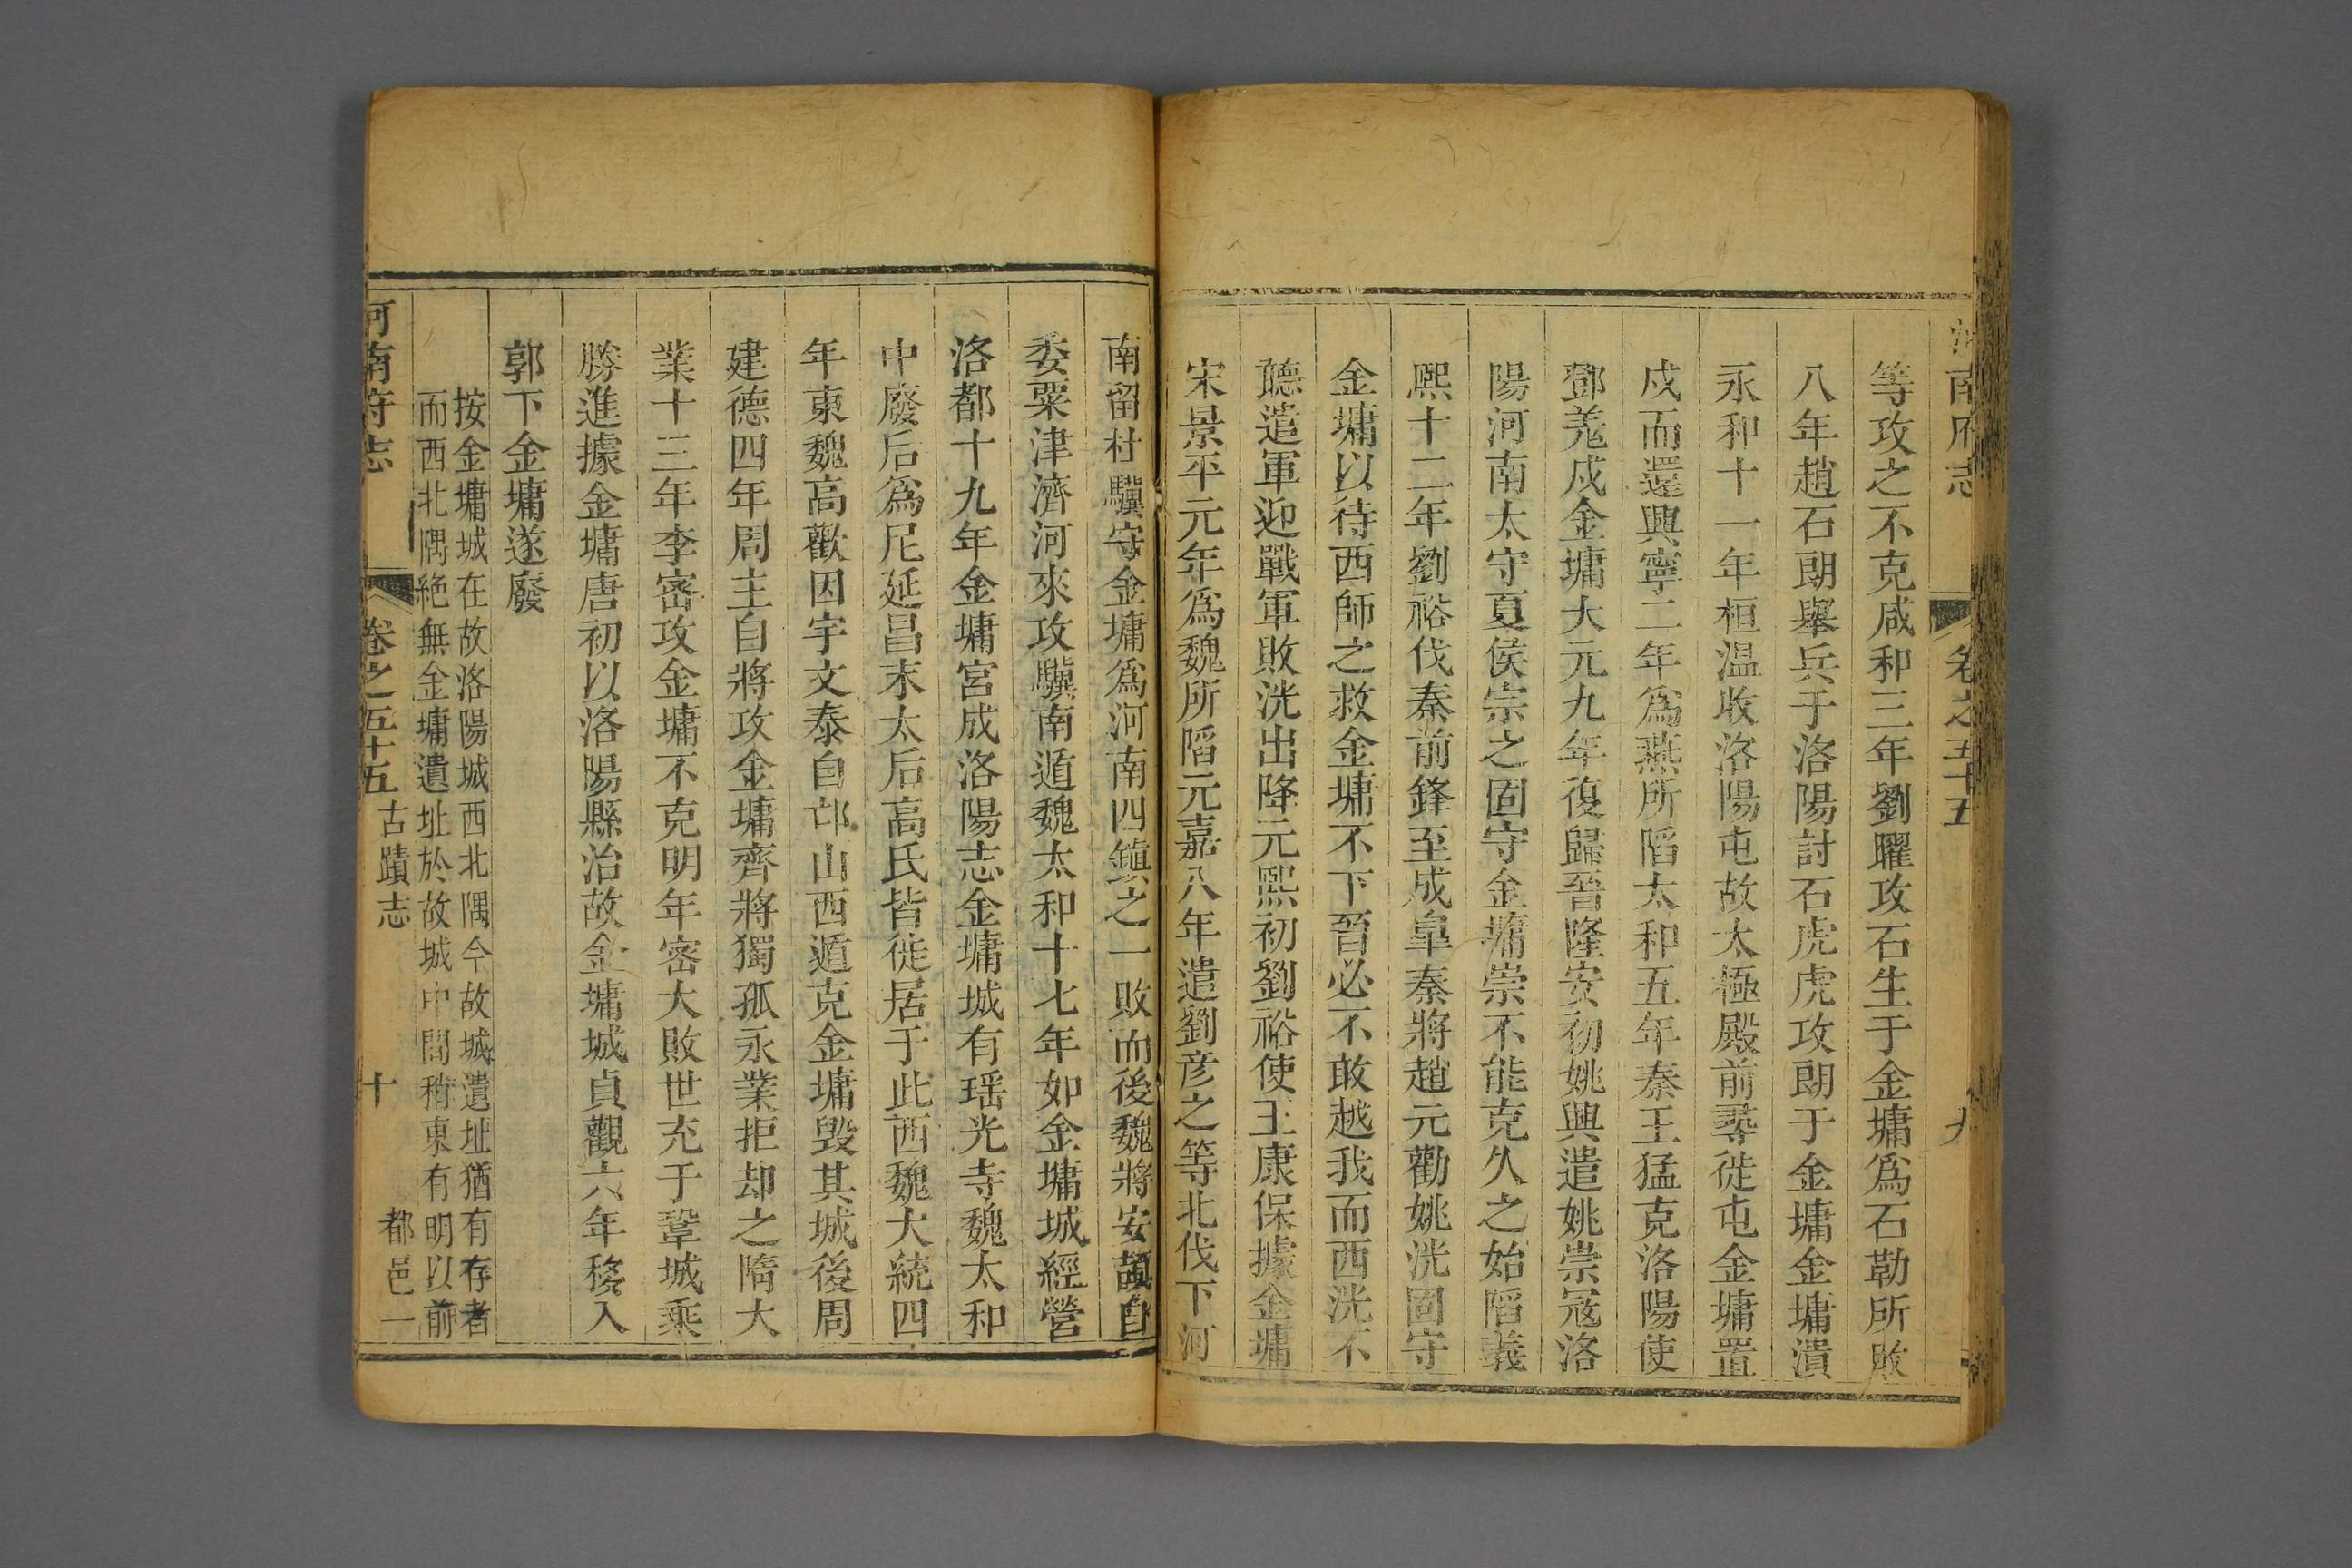 河南府志 卷之五十五 九
等攻之不克咸和三年劉曜攻石生于金墉爲石勒所敗
八年趙石朗舉兵于洛陽討石虎虎攻朗于金墉金墉潰
永和十一年桓温收洛陽屯故太極殿前尋徙屯金墉置
戍而還興寧二年爲燕所陷太和五年秦王猛克洛陽使
鄧羌戍金墉大元九年復歸晉隆安初姚興遣姚崇冦洛
陽河南太守夏侯宗之固守金墉崇不能克久之始陷義
熙十二年劉裕伐秦前鋒至成皐秦將趙元勸姚洸固守
金墉以待西師之救金墉不下晉必不敢越我而西洸不
聽遣軍迎戰軍敗洸出降元熙初劉裕使王康保據金墉
宋景平元年爲魏所陷元嘉八年遣劉彦之等北伐下河
南留杜驥守金墉爲河南四鎮之一敗而後魏將安頡自
委粟津濟河來攻驥南遁魏太和十七年如金墉城經營
洛都十九年金墉宮成洛陽志金墉城有瑶光寺魏太和
中廢后爲尼延昌末太后高氏皆徙居于此西魏大統四
年東魏高歡因宇文泰自邙山西遁克金墉毀其城後周
建德四年周主自將攻金墉齊將獨孤永業拒却之隋大
業十三年李密攻金墉不克明年密大敗世充于鞏城乘
勝進據金墉唐初以洛陽縣治故金墉城貞觀六年移入
郭下金墉遂廢
按金墉城在故洛陽城西北隅今故城遺址猶有存者
而西北隅絶無金墉遺址於故城中間稍東有明以前
河南府志 卷之五十五 古蹟志 十 都邑一